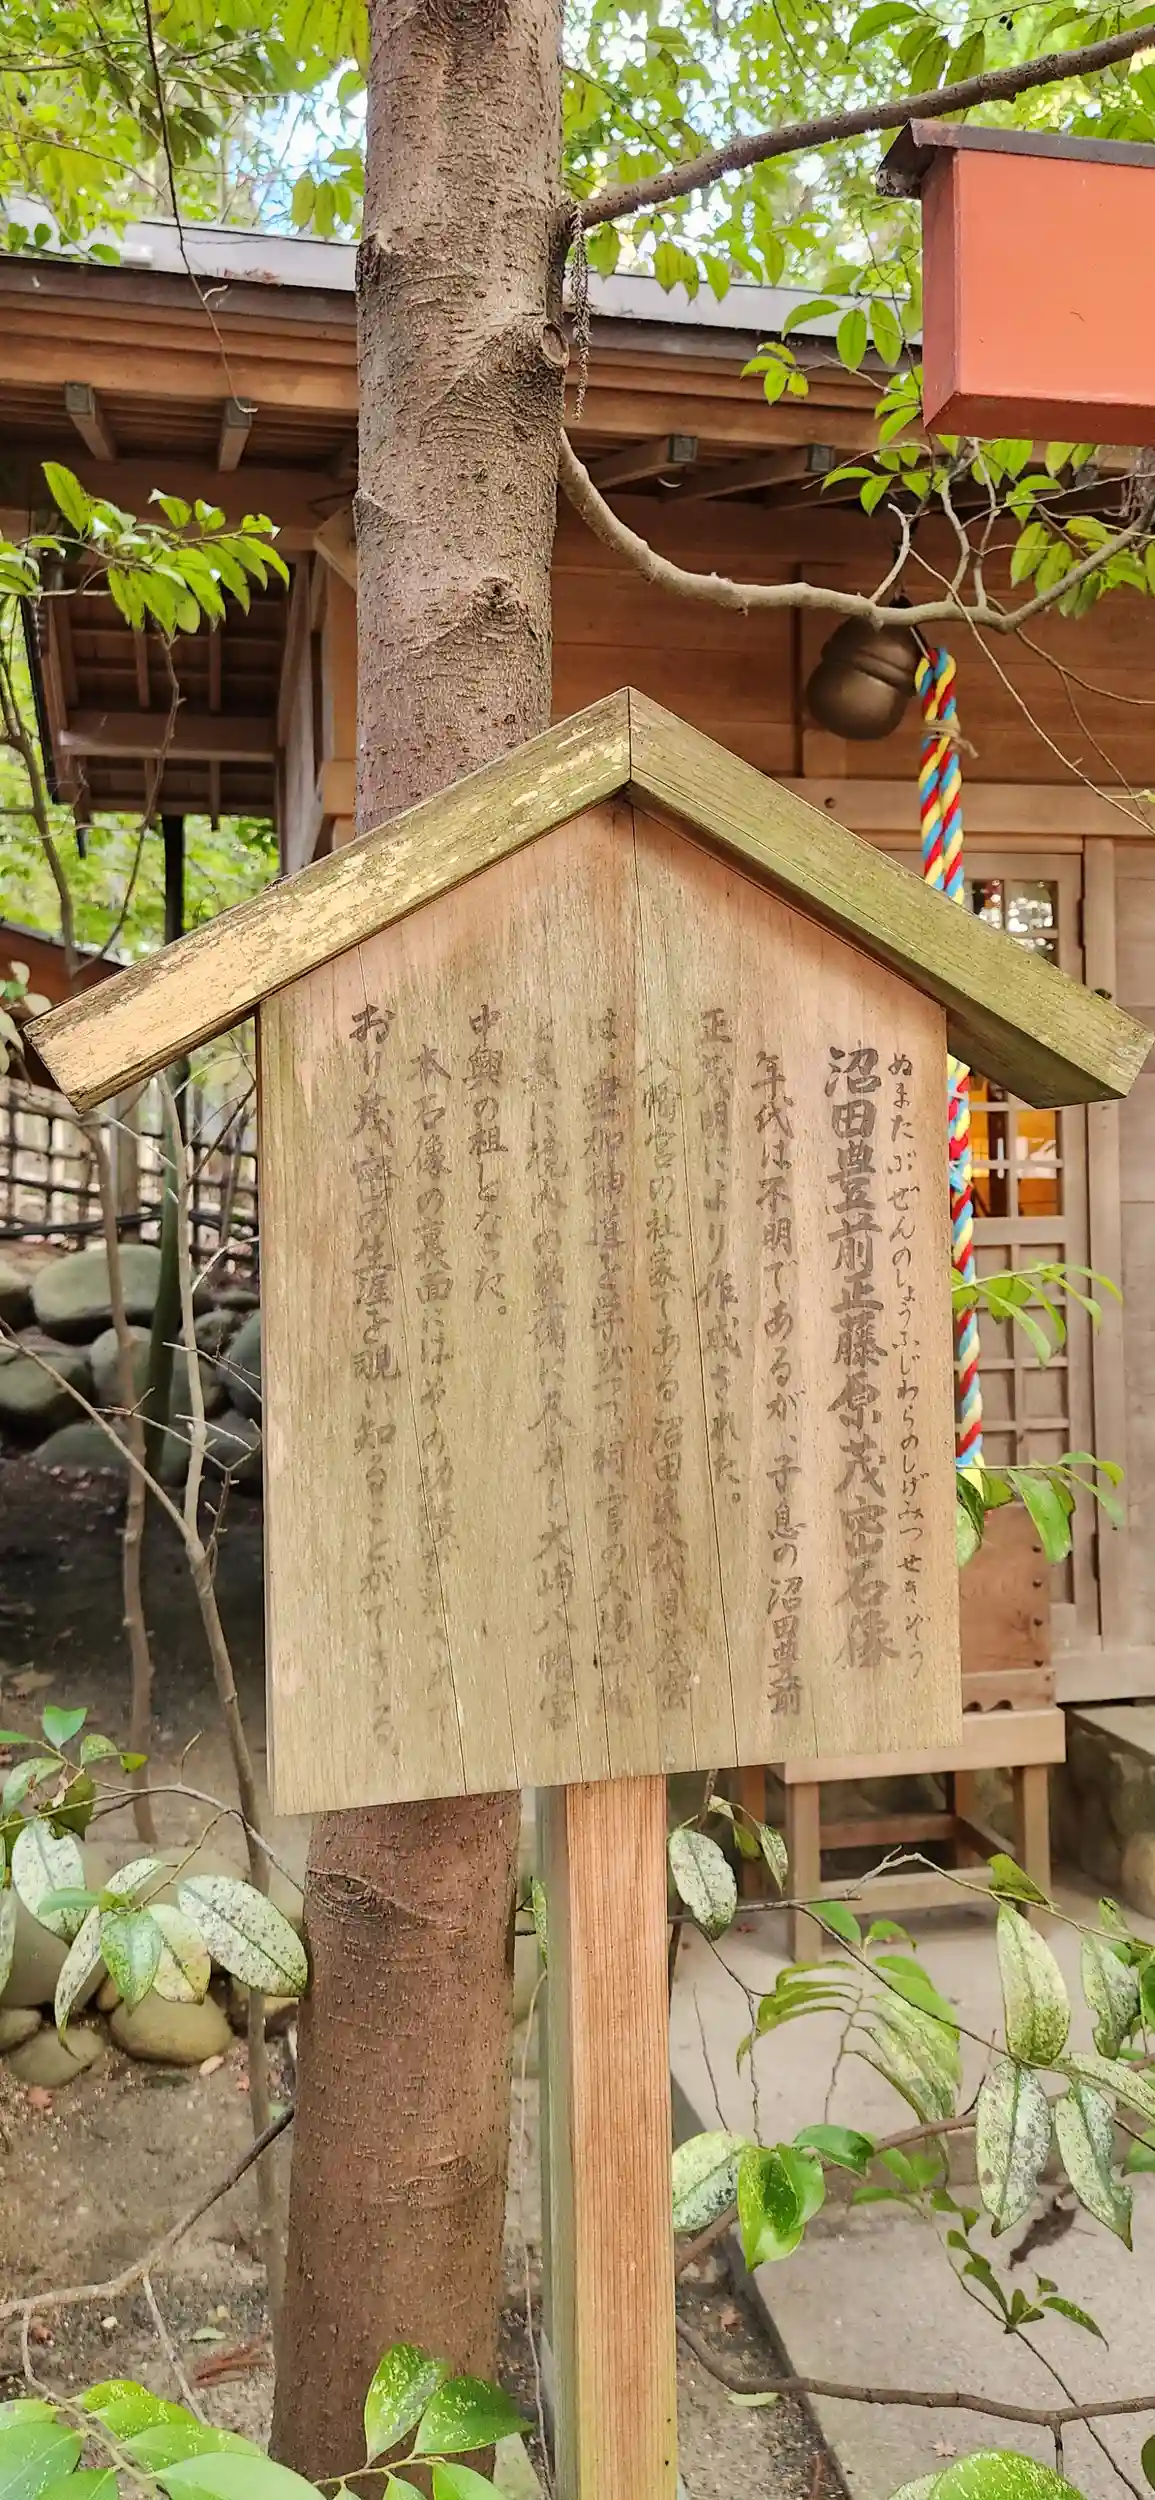 ぬまたぶぜんのしょうふじわらのしげみつせきぞう
沼田豊前正藤原茂密石像
年代は不明であるが、子息の沼田豊前
正茂明により作成された。
八幡宮の社家である沼田家八代目茂密
は、垂加神道を学びつつ祠官の大場
ともに境内の整備に尽力し大崎八幡宮
中興の祖となった。
本石像の裏面にはその功績が
おり茂密の生涯を窺い知ることができる。